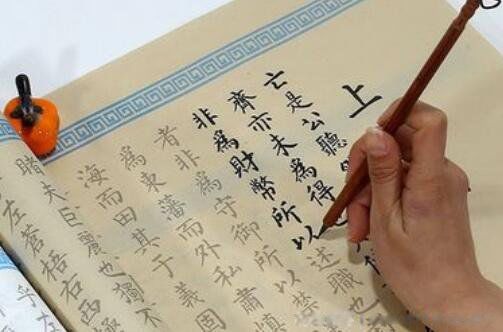 上
亡是公聽
齊亦未為得
非為財幣所以述職也
者非為守御所以禁
為東藩而外私肅慎
海而田其于義固
睹夫巨麗也獨不
左蒼梧右西極
乎